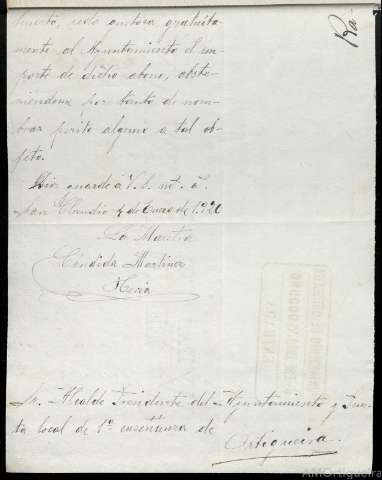 huerto, cedo ambora gratuita-
mente al Ayuntamiento el im-
porte de dicho abono, abste-
niendome por tanto de nom-
brar perito alguno a tal ob-
jeto.
Dios guarde á V. S. m. a.
San Claudio 4 de Enero de 1.920
La Maestra
Cándida Martínez
Sr. Alcalde Presidente del Ayuntamiento y Jun-
ta local de 1ª enseñanza de
Ortigueira.
AMOrtigueira